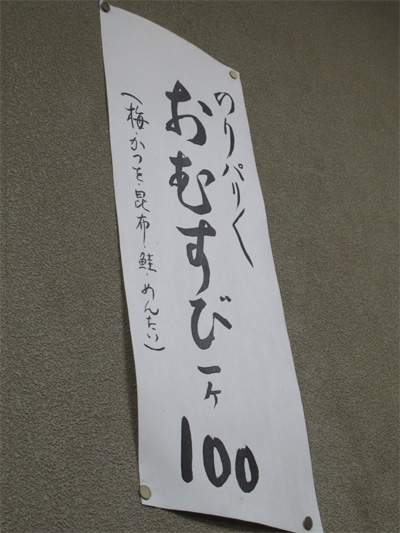 のりパリ〱
おむすび一ケ100
(梅・かつを・昆布・鮭・めんたい)